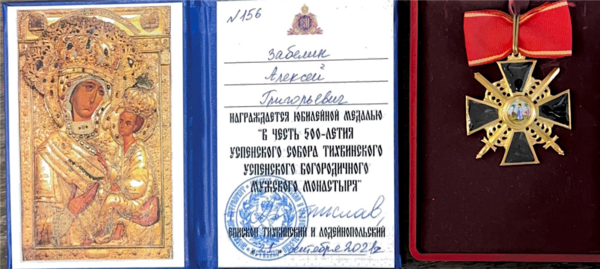 №156
Забелин
Алексей
Григорьевич
НАГРАЖДАЕТСЯ ЮБИЛЕЙНОЙ МЕДАЛЬЮ
"В ЧЕСТЬ 500-ЛЕТИЯ
УСПЕНСКОГО СОБОРА ТИХВИНСКОГО
УСПЕНСКОГО БОГОРОДИЧНОГО
МУЖСКОГО МОНАСТЫРЯ"
ЕПИСКОП ТИХВИНСКИЙ И ЛОДЕЙНОПОЛЬСКИЙ